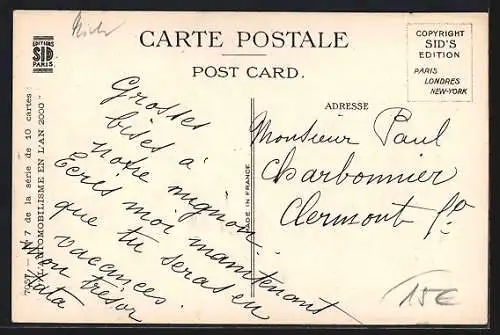 EDITIONS
SID
PARIS
CARTE POSTALE
POST CARD.
COPYRIGHT
SID'S
EDITION
PARIS
LONDRES
NEW-YORK
ADRESSE
7057 — N° 7 de la série de 10 cartes:
"L'AUTOMOBILISME EN L'AN 2000"
MADE IN FRANCE
Grosses
bises à
notre mignon.
Ecris moi maintenant
que tu seras en
vacances.
mon trésor
tata
Monsieur Paul
Charbonnier
Clermont
15€